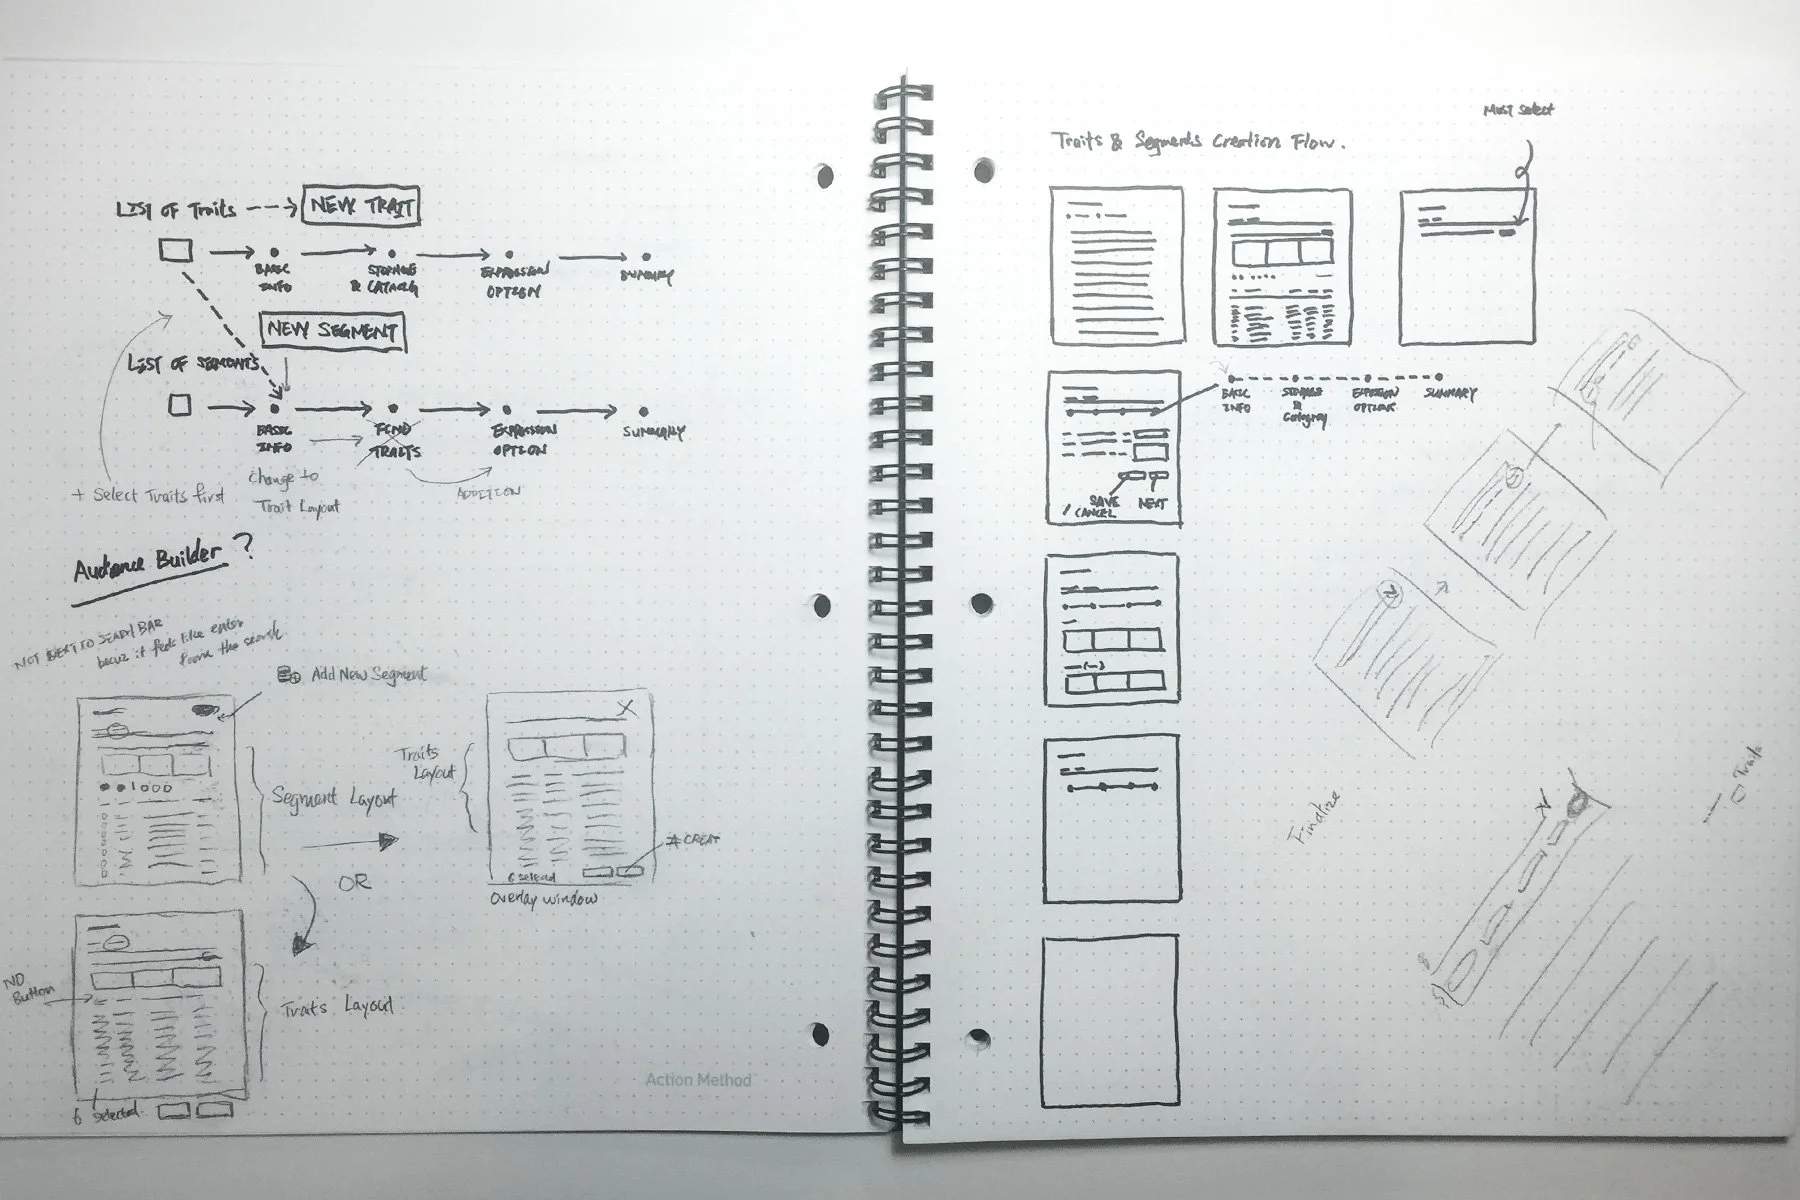 LIST OF Traits
NEW TRAIT
BASIC
INFO
STORAGE
& CATALOG
EXPRESSION
OPTION
SUMMARY
NEW SEGMENT
LIST OF SEGMENTS
BASIC
INFO
FIND
TRAITS
EXPRESSION
OPTION
SUMMARY
+ Select Traits first
Change to
Trait Layout
ADDITION
Audience Builder ?
NOT NEXT TO SEARCH BAR
it feels like enter
the search
Add New Segment
Segment Layout
OR
Traits
Layout
6 selected
CREAT
Overlay window
NO
Button
Traits Layout
6 selected
Action Method
Must select
Traits & Segments Creation Flow.
BASIC
INFO
STORAGE
&
Category
EXPRESSION
OPTION
SUMMARY
SAVE
/ CANCEL
NEXT
Finalize